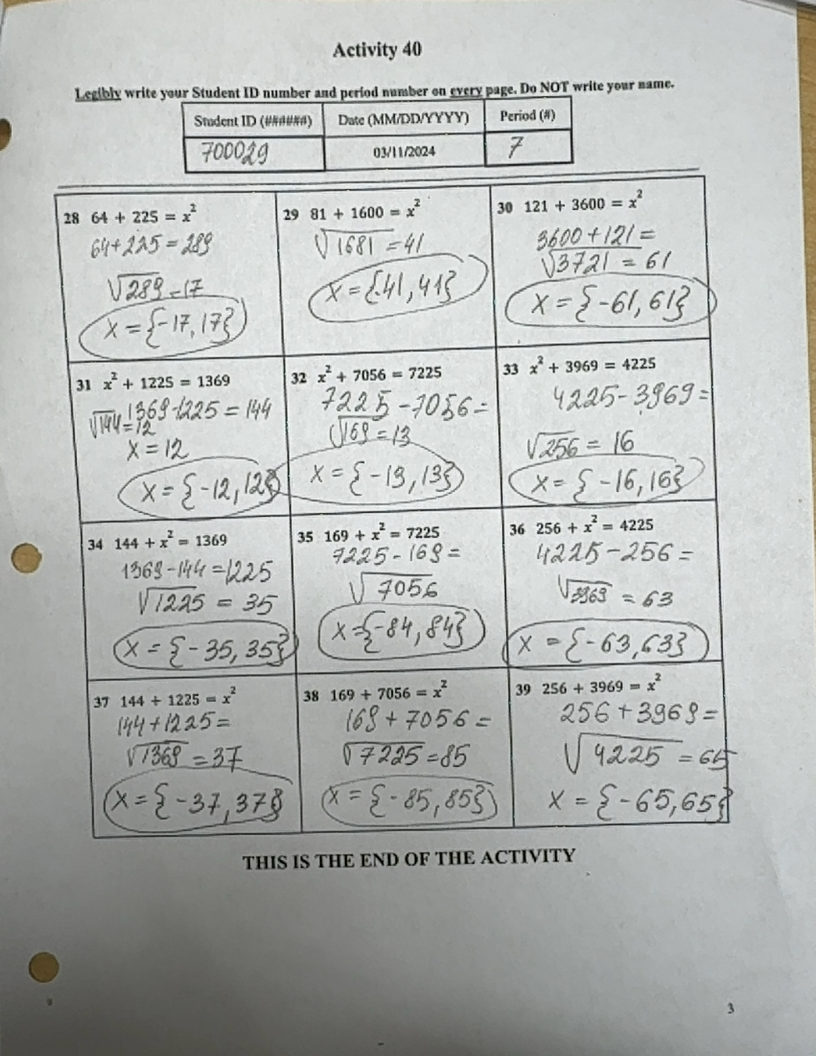 Activity 40
Legibly write your Student ID number and period number on every page. Do NOT write your name.
Student ID (######) Date (MM/DD/YYYY) Period (#)
700029 03/11/2024 7
28 64 + 225 = x²
64+225=289
√289=17
x={-17,17}
29 81 + 1600 = x²
√1681=41
x={41,41}
30 121 + 3600 = x²
3600+121=
√3721=61
x={-61,61}
31 x² + 1225 = 1369
1369-1225=144
√144=12
x=12
x={-12,12}
32 x² + 7056 = 7225
7225-7056=
√169=13
x={-13,13}
33 x² + 3969 = 4225
4225-3969=
√256=16
x={-16,16}
34 144 + x² = 1369
1369-144=1225
√1225=35
x={-35,35}
35 169 + x² = 7225
7225-169=
√7056
x={-84,84}
36 256 + x² = 4225
4225-256=
√3969=63
x={-63,63}
37 144 + 1225 = x²
144+1225=
√1369=37
x={-37,37}
38 169 + 7056 = x²
169+7056=
√7225=85
x={-85,85}
39 256 + 3969 = x²
256+3969=
√4225=65
x={-65,65}
THIS IS THE END OF THE ACTIVITY
3